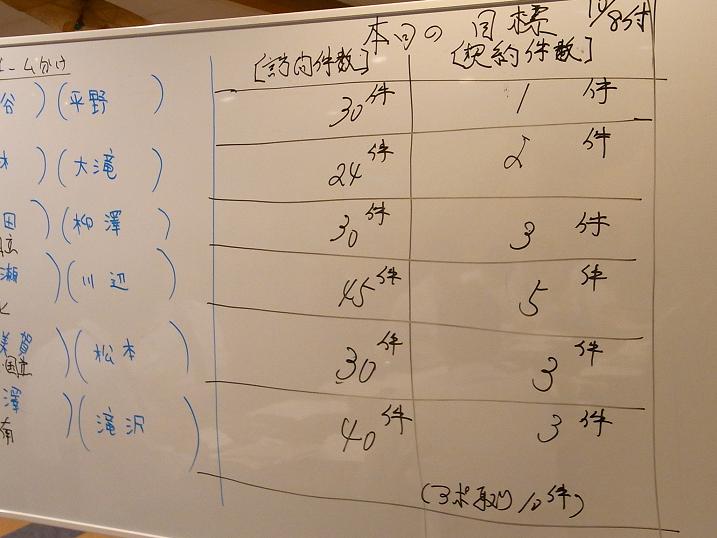 本日の目標 10/8付
ーム分け [訪内件数] [契約件数]
谷)(平野) 30件 1件
木)(大滝) 24件 2件
田)(柳澤) 30件 3件
瀬)(川辺) 45件 5件
美賀)(松本) 30件 3件
国立
澤)(滝沢) 40件 3件
南
(3ポ取り10件)